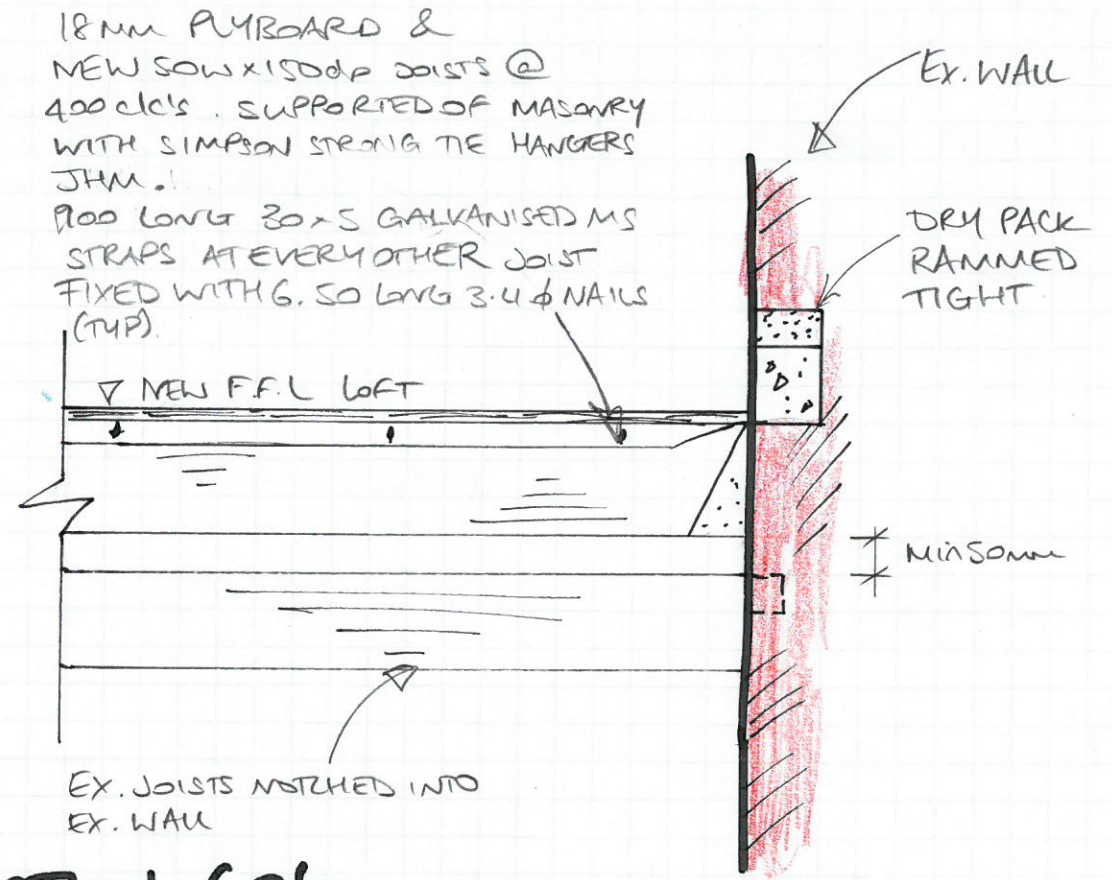 18mm PLYBOARD &
NEW 50W x 150dp JOISTS @
400 c/c's. SUPPORTED OF MASONRY
WITH SIMPSON STRONG TIE HANGERS
JHM.
900 LONG 30x5 GALVANISED MS
STRAPS AT EVERY OTHER JOIST
FIXED WITH 6. 50 LONG 3.4 φ NAILS
(TYP).
EX. WALL
DRY PACK
RAMMED
TIGHT
NEW F.F.L LOFT
min 50mm
EX. JOISTS NOTCHED INTO
EX. WALL